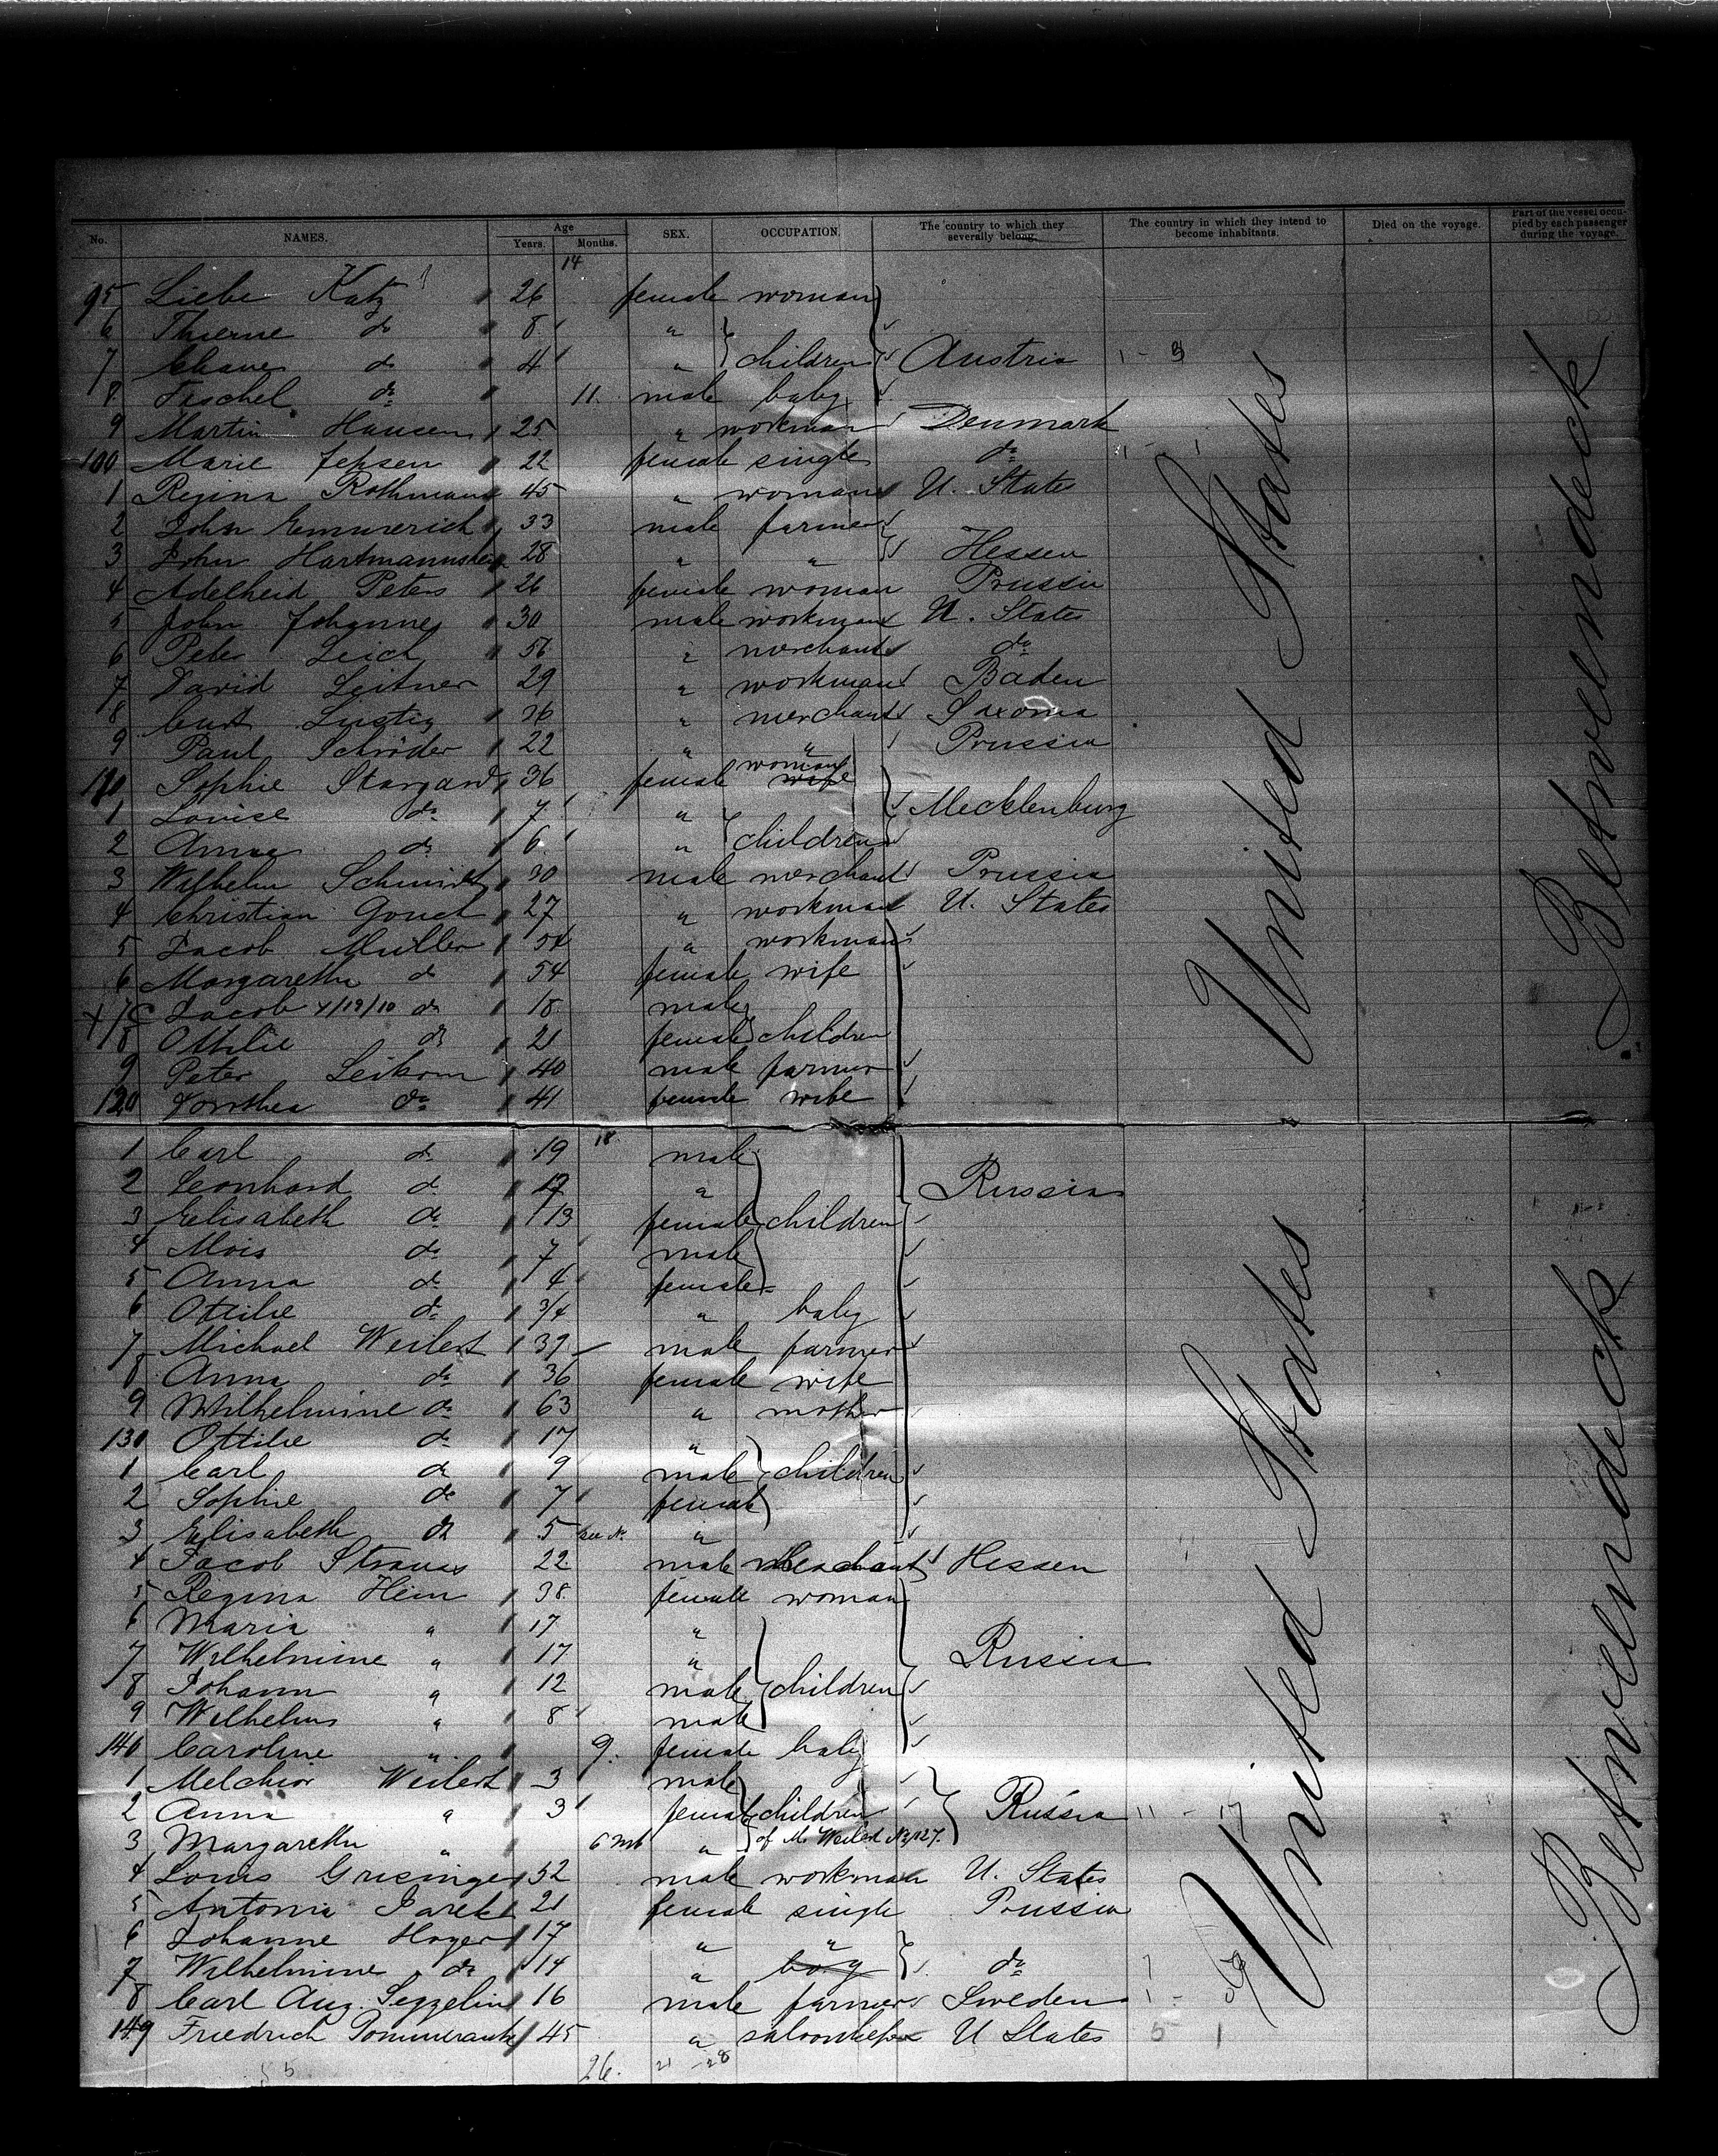 No. NAMES. Age Years. Months. SEX. OCCUPATION. The country to which they severally belong. The country in which they intend to become inhabitants. Died on the voyage. Part of the vessel occupied by each passenger during the voyage.
14
95 Liebe Katz 26 female woman
6 do 8 "
7 do 4 " children Austria
8 Fischel do 11 male baby
9 Martin Hansen 25 " workman Denmark
100 Marie Jepsen 22 female single do
1 Regina Rothmann 45 " woman U. States
2 John Emmerich 33 male farmer
3 John 28 " " Hessen
4 Adelheid Peters 26 female woman Prussia
5 John Johannes 30 male workman U. States
6 Peter Leich 56 " merchant do
7 David Leitner 29 " workman Baden
8 Curt Lustig 26 " merchant Saxonia
9 Paul Schröder 22 " " Prussia
110 Sophie Stargard 36 female woman wife
1 Louise do 7 " Mecklenburg
2 Anna do 6 " children
3 Wilhelm Schmidt 30 male merchant Prussia
4 Christian 27 " workman U. States
5 Jacob Müller 54 " workman
6 Margaretha do 54 female wife
7 Jacob 4/19/10 do 18 male
8 Ottilie do 21 female children
9 Peter Leikom 40 male farmer
120 Dorothea do 41 female wife
18
1 Carl do 19 male
2 Leonhard do 17 " Russia
3 Elisabeth do 13 female children
4 Alois do 7 male
5 Anna do 4 female
6 Ottilie do 3/4 " baby
7 Michael Weilert 39 male farmer
8 Anna do 36 female wife
9 Wilhelmine do 63 " mother
130 Ottilie do 17 "
1 Carl do 9 male children
2 Sophie do 7 female
3 Elisabeth do 5 "
4 Jacob Strauss 22 male merchant Hessen
5 Regina Hein 38 female woman
6 Maria " 17 "
7 Wilhelmine " 17 " Russia
8 Johann " 12 male children
9 Wilhelm " 8 male
140 Caroline " 9 female baby
1 Melchior Weilert 3 male
2 Anna " 3 female children Russia 11 - 17
3 Margaretha " 6 mth " of M. Weilert No. 127.
4 Louis Gresinger 52 male workman U. States
5 Antonie 21 female single Prussia
6 Johanne Hoger 17 " "
7 Wilhelmine do 14 " boy do
8 Carl Aug. Seggelin 16 male farmer Sweden
149 Friedrich Pommerank 45 " saloonkeeper U States 5 1
26. 21 28
United States
Betweendeck
United States
Betweendeck